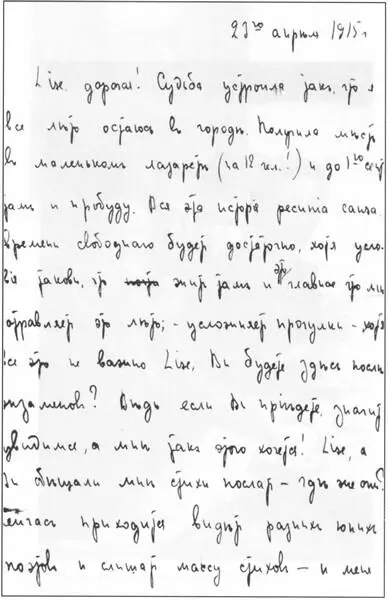 23го апрѣля 1915 г
Lise, дорогая! Судьба устроила такъ, что я
все лѣто остаюсь въ городѣ. Получила мѣсто
въ маленькомъ лазаретѣ (на 12 чел.!) и до 1го сент
тамъ и пробуду. Вся эта
времени свободнаго будетъ достаточно, хотя усло-
вiя таковы, что надо жить тамъ и это главное что мнѣ
отравляетъ это лѣто; - усложняетъ прогулки - хотя
все это не важно Lise, Вы будете здѣсь послѣ
экзаменовъ? Вѣдь если Вы прiѣдете, значитъ
увидимся, а мнѣ такъ этого хочется! Lise, а
Вы обѣщали мнѣ стихи послать - гдѣ же они?
Сейчасъ приходится видѣть разныхъ юныхъ
поэтовъ и слышать массу стиховъ - и меня